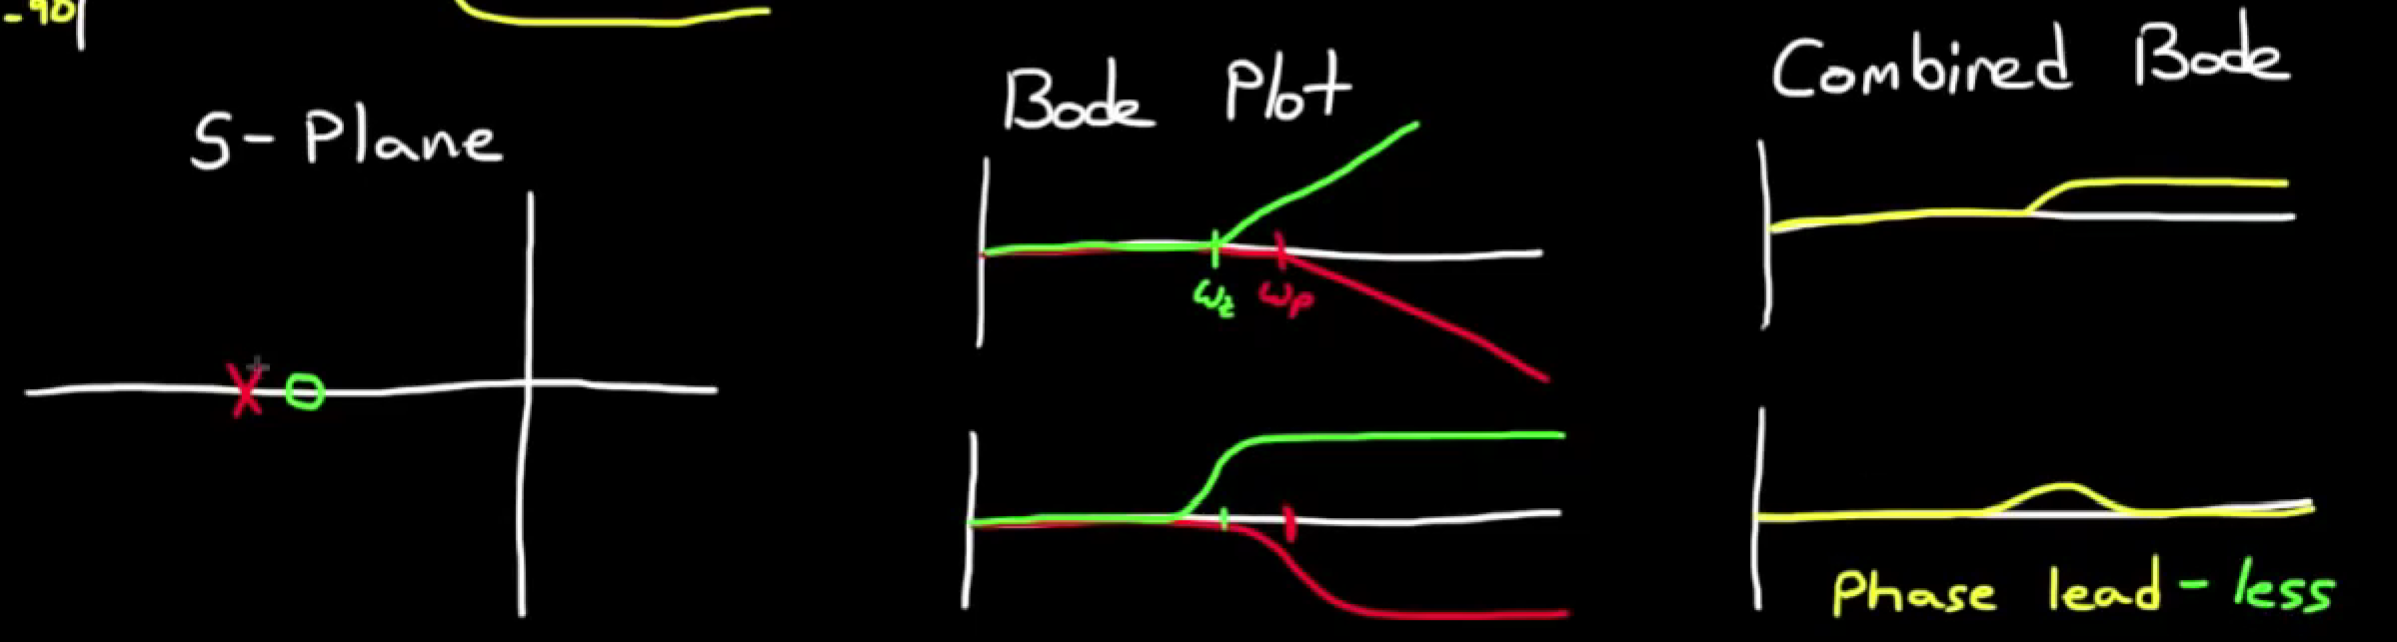 -90
S-Plane
Bode Plot
Combined Bode
ωz ωp
Phase lead - less